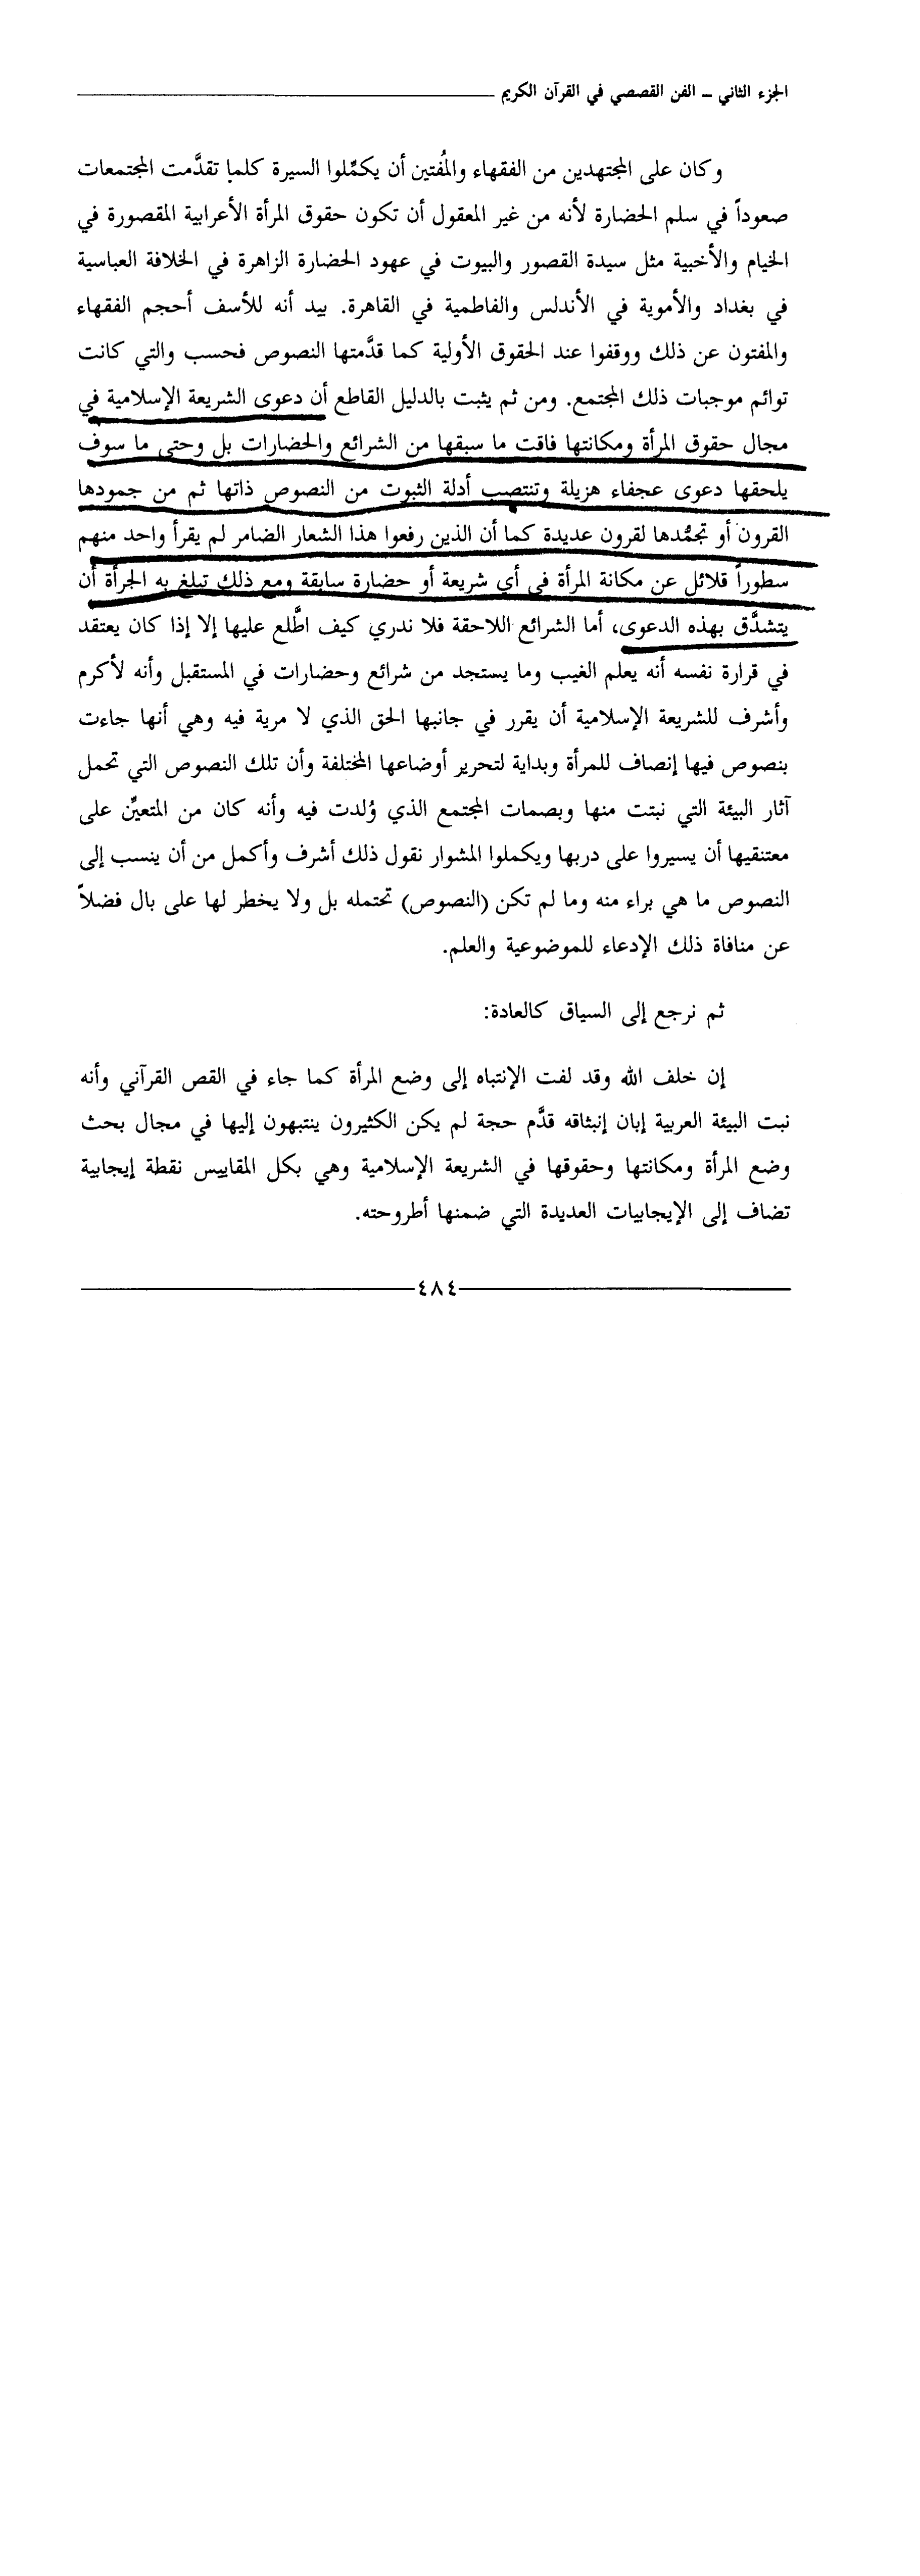 الجزء الثاني – الفن القصصي في القرآن الكريم
وكان على المجتهدين من الفقهاء والمُفتين أن يكمِّلوا السيرة كلما تقدَّمت المجتمعات
صعوداً في سلم الحضارة لأنه من غير المعقول أن تكون حقوق المرأة الأعرابية المقصورة في
الخيام والأخبية مثل سيدة القصور والبيوت في عهود الحضارة الزاهرة في الخلافة العباسية
في بغداد والأموية في الأندلس والفاطمية في القاهرة. بيد أنه للأسف أحجم الفقهاء
والمفتون عن ذلك ووقفوا عند الحقوق الأولية كما قدَّمتها النصوص فحسب والتي كانت
توائم موجبات ذلك المجتمع. ومن ثم يثبت بالدليل القاطع أن دعوى الشريعة الإسلامية في
مجال حقوق المرأة ومكانتها فاقت ما سبقها من الشرائع والحضارات بل وحتى ما سوف
يلحقها دعوى عجفاء هزيلة وتنتصب أدلة الثبوت من النصوص ذاتها ثم من جمودها
القرون أو تجمُّدها لقرون عديدة كما أن الذين رفعوا هذا الشعار الضامر لم يقرأ واحد منهم
سطوراً قلائل عن مكانة المرأة في أي شريعة أو حضارة سابقة ومع ذلك تبلغ به الجرأة أن
يتشدَّق بهذه الدعوى، أما الشرائع اللاحقة فلا ندري كيف اطَّلع عليها إلا إذا كان يعتقد
في قرارة نفسه أنه يعلم الغيب وما يستجد من شرائع وحضارات في المستقبل وأنه لأكرم
وأشرف للشريعة الإسلامية أن يقرر في جانبها الحق الذي لا مرية فيه وهي أنها جاءت
بنصوص فيها إنصاف للمرأة وبداية لتحرير أوضاعها المختلفة وأن تلك النصوص التي تحمل
آثار البيئة التي نبتت منها وبصمات المجتمع الذي وُلدت فيه وأنه كان من المتعيِّن على
معتنقيها أن يسيروا على دربها ويكملوا المشوار نقول ذلك أشرف وأكمل من أن ينسب إلى
النصوص ما هي براء منه وما لم تكن (النصوص) تحتمله بل ولا يخطر لها على بال فضلاً
عن منافاة ذلك الإدعاء للموضوعية والعلم.
ثم نرجع إلى السياق كالعادة:
إن خلف الله وقد لفت الإنتباه إلى وضع المرأة كما جاء في القص القرآني وأنه
نبت البيئة العربية إبان إنبثاقه قدَّم حجة لم يكن الكثيرون ينتبهون إليها في مجال بحث
وضع المرأة ومكانتها وحقوقها في الشريعة الإسلامية وهي بكل المقاييس نقطة إيجابية
تضاف إلى الإيجابيات العديدة التي ضمنها أطروحته.
٤٨٤